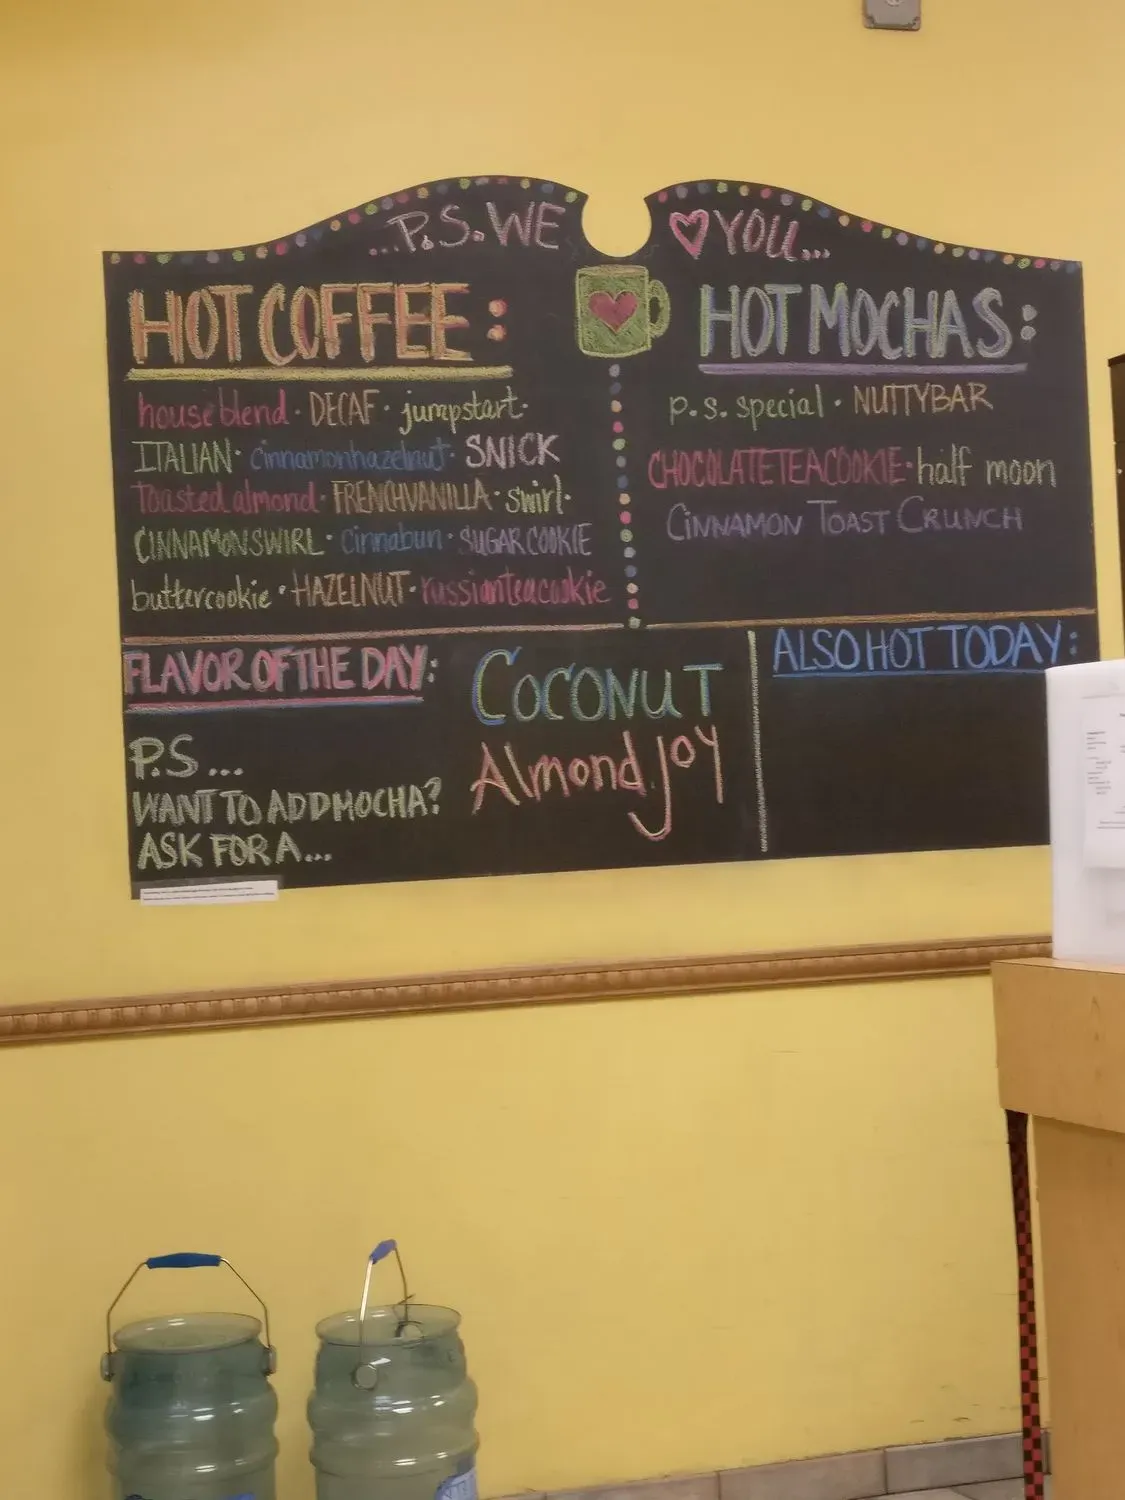 ...P.S. WE ♡ YOU...
HOT COFFEE:
house blend · DECAF · jumpstart ·
ITALIAN · cinnamon hazelnut · SNICK
Toasted almond · FRENCH VANILLA · swirl ·
CINNAMON SWIRL · cinnabun · SUGAR COOKIE
butter cookie · HAZELNUT · russian tea cookie
HOT MOCHAS:
p.s. special · NUTTY BAR
CHOCOLATE TEA COOKIE · half moon
CINNAMON TOAST CRUNCH
FLAVOR OF THE DAY:
COCONUT
Almond Joy
P.S...
WANT TO ADD MOCHA?
ASK FOR A...
ALSO HOT TODAY: